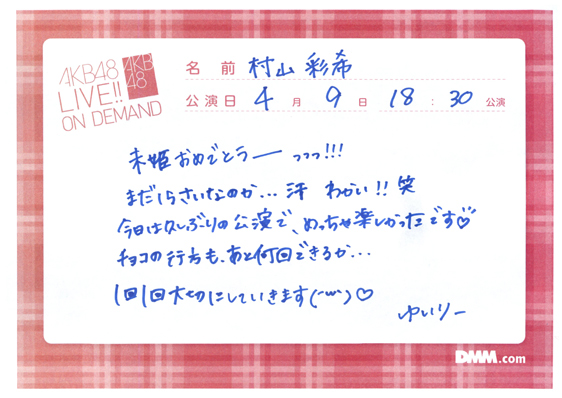 AKB48
LIVE!!
ON DEMAND
AKB
48
名 前 村山 彩希
公演日 4 月 9 日 18 : 30 公演
未姫おめでとうーっっっ!!!
まだ15さいなのか…汗 わかい!! 笑
今日は久しぶりの公演で、めっちゃ楽しかったです♡
チョコの行方も、あと何回できるか…
1回1回大切にしていきます(˘ω˘)♡
ゆいりー
DMM.com